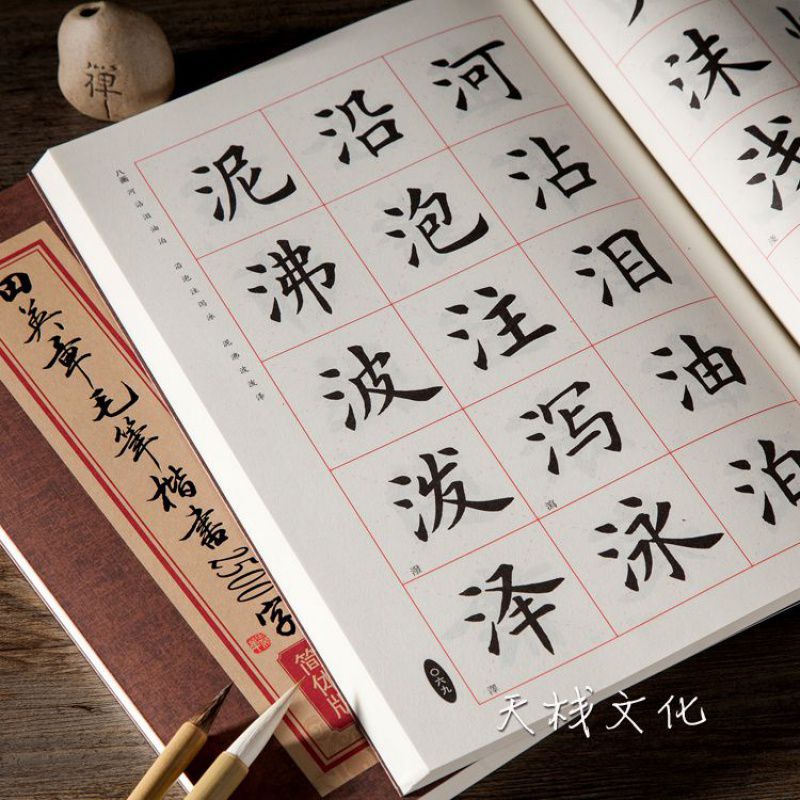 禅
沫
浅
淺
河
沾
泪
油
泊
沿
泡
注
泻
瀉
泳
泥
沸
波
泼
潑
泽
澤
八画 河沾泪油泊 沿泡注泻泳 泥沸波泼泽
〇六九
田英章毛筆楷書2500字
简体版
天栈文化